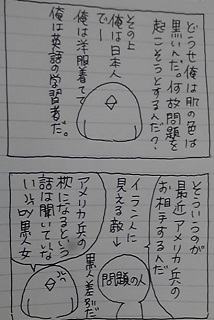 どうせ俺は肌の色は
黒いんだ。何故問題を
起こそうとするんだ?
その上
俺は日本人
でー
俺は洋服着てて
俺は英語の学習者だ。
そういうのが
最近アメリカ兵の
お相手するんだ
イラン人に
見える敵→
問題の人
黒人差別だ
アメリカ兵の
枕になるという
話は聞いていな
い
黒人女